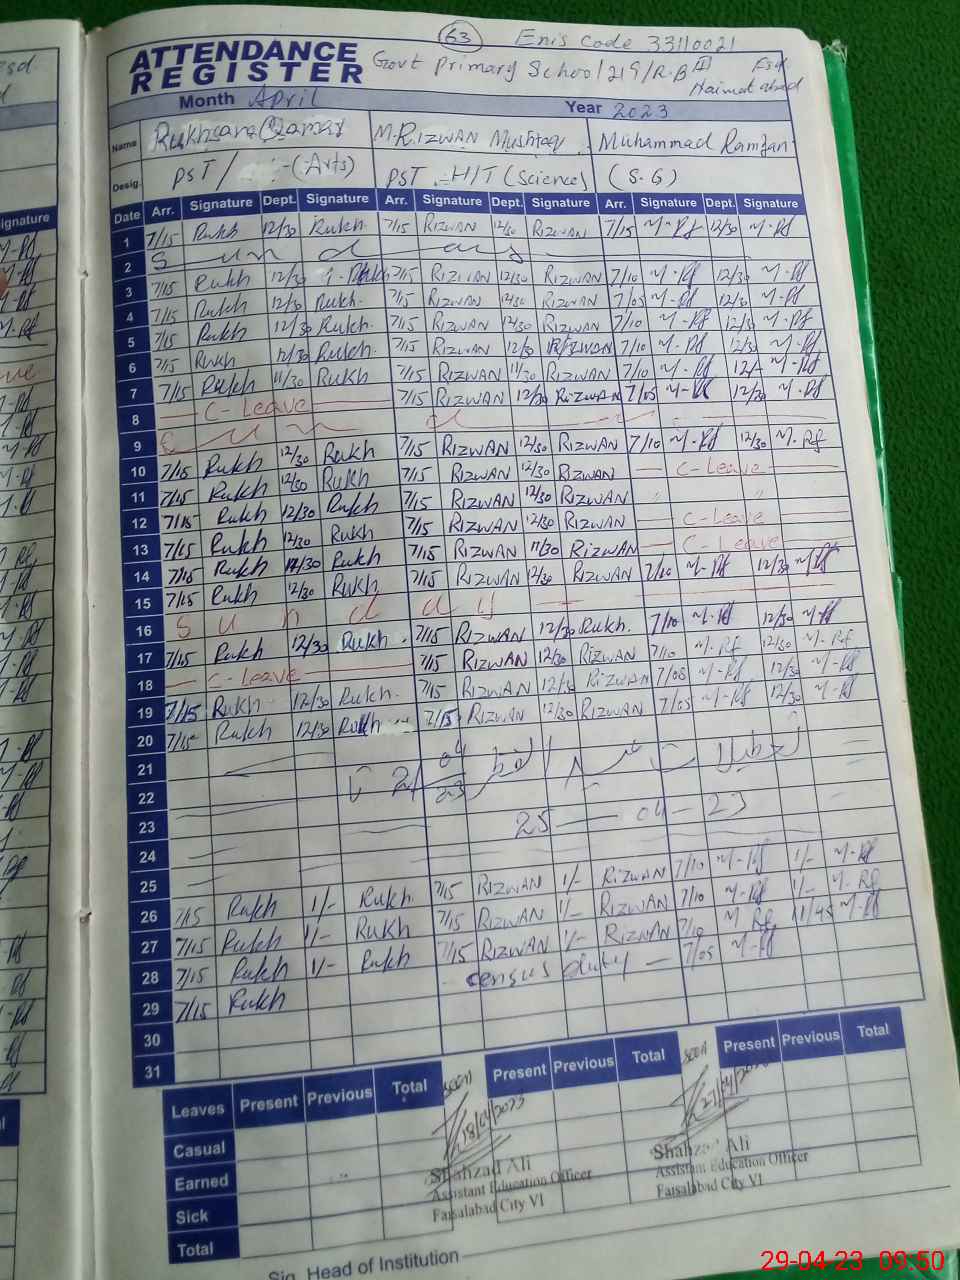 63 Emis Code 33110021
ATTENDANCE REGISTER
Govt Primary School 219/R.B II
Haimat abad
Month April Year 2023
Name Rukhsana Qamar M.RIZWAN Mushtaq Muhammad Ramzan
Desig. PST / (Arts) PST H/T (Science) (S.G)
Date Arr. Signature Dept. Signature Arr. Signature Dept. Signature Arr. Signature Dept. Signature
1 7/15 Rukh 12/30 Rukh. 7/15 RIZWAN 12/30 RIZWAN 7/15 M-Rf 12/30 M-Rf
2 S un d ay
3 7/15 Rukh 12/30 7/15 RIZWAN 12/30 RIZWAN 7/10 M-Rf 12/30 M-Rf
4 7/15 Rukh 12/30 Rukh. 7/15 RIZWAN 12/30 RIZWAN 7/05 M-Rf 12/30 M-Rf
5 7/15 Rukh 12/30 Rukh. 7/15 RIZWAN 12/30 RIZWAN 7/10 M-Rf 12/30 M-Rf
6 7/15 Rukh 12/30 Rukh. 7/15 RIZWAN 12/30 RIZWAN 7/10 M-Rf 12/30 M-Rf
7 7/15 Rukh 11/30 Rukh 7/15 RIZWAN 11/30 RIZWAN 7/10 M-Rf 12/- M-Rf
8 C-Leave 7/15 RIZWAN 12/30 RIZWAN 7/05 M-Rf 12/30 M-Rf
9 S u n d
10 7/15 Rukh 12/30 Rukh 7/15 RIZWAN 12/30 RIZWAN 7/10 M-Rf 12/30 M.Rf
11 7/15 Rukh 12/30 Rukh 7/15 RIZWAN 12/30 RIZWAN C-Leave
12 7/15 Rukh 12/30 Rukh 7/15 RIZWAN 12/30 RIZWAN " "
13 7/15 Rukh 12/30 Rukh 7/15 RIZWAN 12/30 RIZWAN C-Leave
14 7/15 Rukh 11/30 Rukh 7/15 RIZWAN 11/30 RIZWAN C-Leave
15 7/15 Rukh 12/30 Rukh 7/15 RIZWAN 12/30 RIZWAN 7/10 M-Rf 12/30 M-Rf
16 S u n d a y
17 7/15 Rukh 12/30 Rukh 7/15 RIZWAN 12/30 Rukh. 7/10 M-Rf 12/30 M-Rf
18 C-Leave 7/15 RIZWAN 12/30 RIZWAN 7/10 M.Rf 12/30 M.Rf
19 7/15 Rukh 12/30 Rukh. 7/15 RIZWAN 12/30 RIZWAN 7/05 M-Rf 12/30 M-Rf
20 7/15 Rukh 12/30 Rukh 7/15 RIZWAN 12/30 RIZWAN 7/05 M-Rf 12/30 M-Rf
21
22
23 25 — 04 — 23
24
25
26 7/15 Rukh 1/- Rukh 7/15 RIZWAN 1/- RIZWAN 7/10 M-Rf 1/- M-Rf
27 7/15 Rukh 1/- Rukh 7/15 RIZWAN 1/- RIZWAN 7/10 M-Rf 1/- M-Rf
28 7/15 Rukh 1/- Rukh 7/15 RIZWAN 1/- RIZWAN 7/10 M Rf 11/45 M-Rf
29 7/15 Rukh census duty — 7/05 M-Rf
30
31
Leaves Present Previous Total Present Previous Total Present Previous Total
Casual
Earned
Sick
Total
18/04/2023
Shahzad Ali
Assistant Education Officer
Faisalabad City VI
Shahzad Ali
Assistant Education Officer
Faisalabad City VI
Sig. Head of Institution
29-04-23 09:50